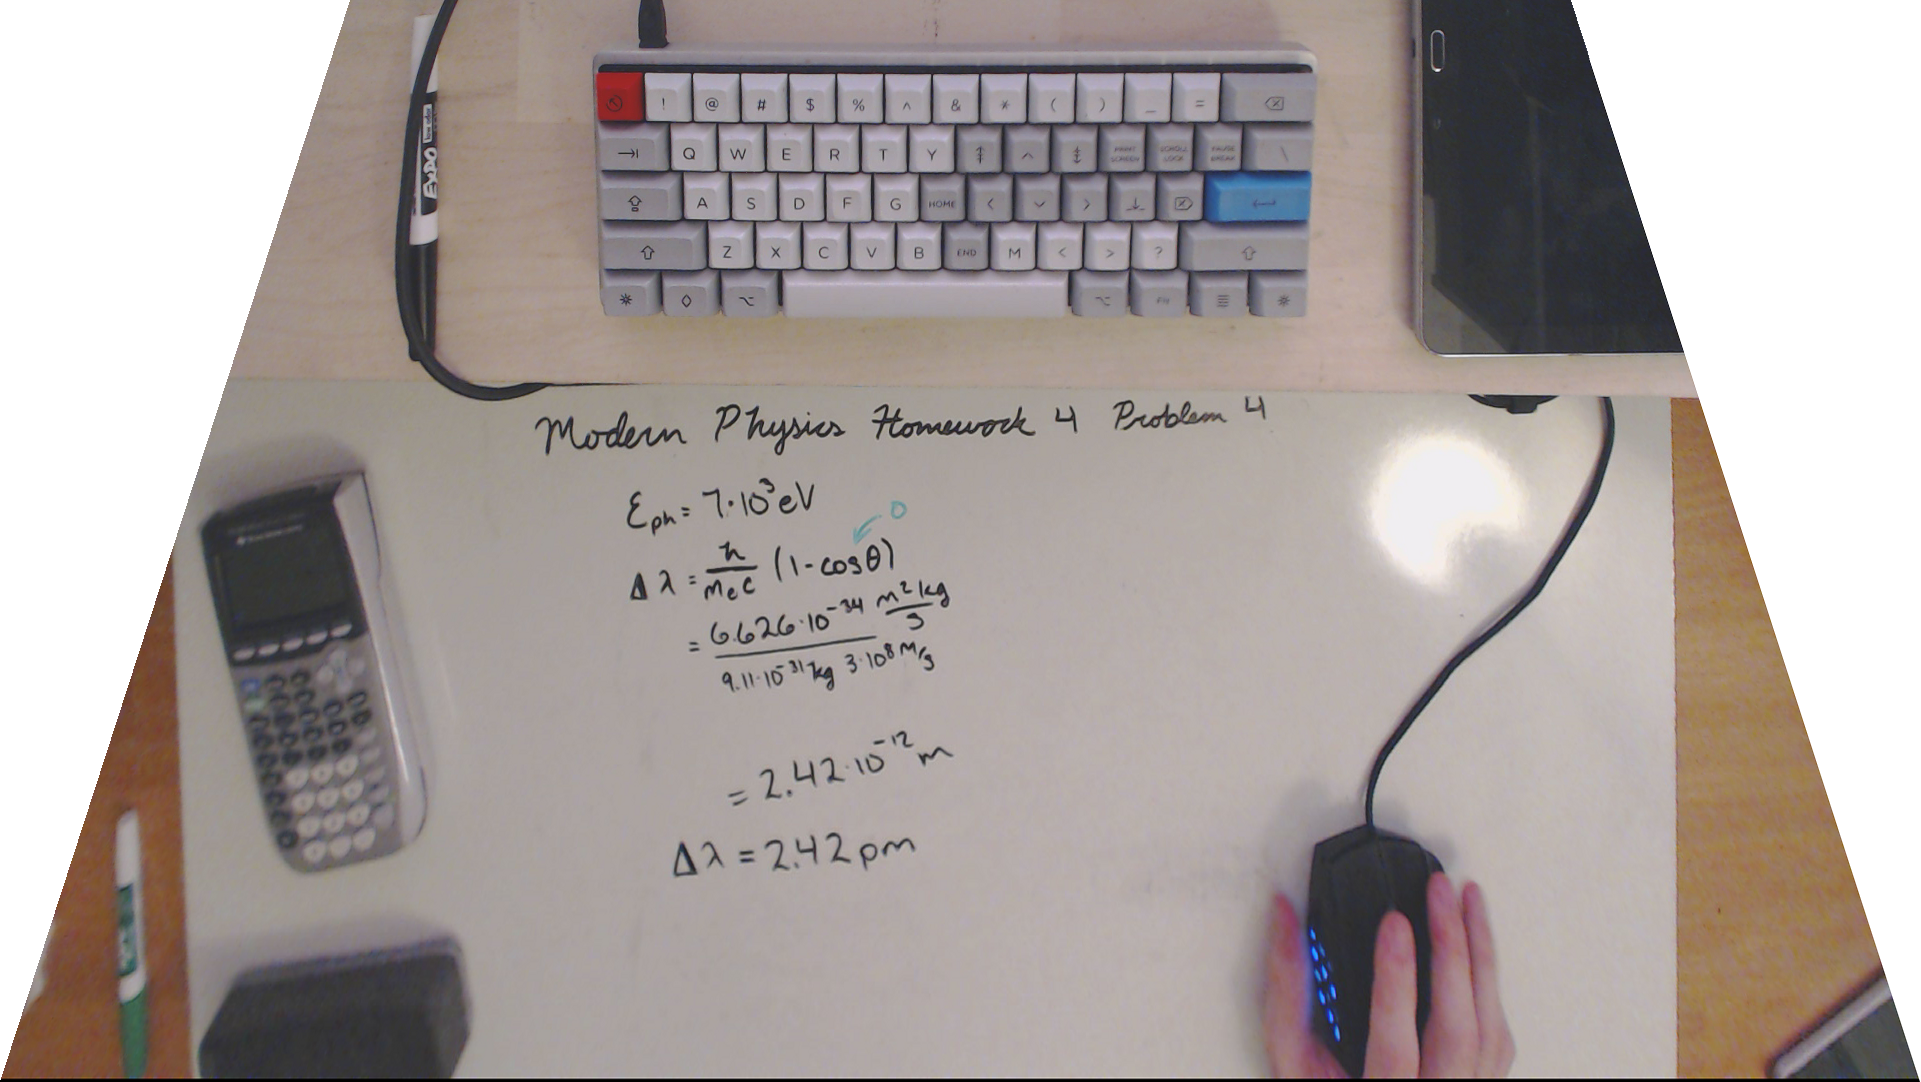 ! @ # $ % ^ & * ( ) _ =
Q W E R T Y PRINT SCREEN SCROLL LOCK PAUSE BREAK \
A S D F G HOME < >
Z X C V B END M < > ?
FN
EXPO
low odor
Modern Physics Homework 4 Problem 4
Ɛph = 7·10³eV
0
Δλ = h/mec (1-cosθ)
= 6.626·10⁻³⁴ m²kg/s
9.11·10⁻³¹kg 3·10⁸m/s
= 2.42·10⁻¹²m
Δλ = 2.42pm